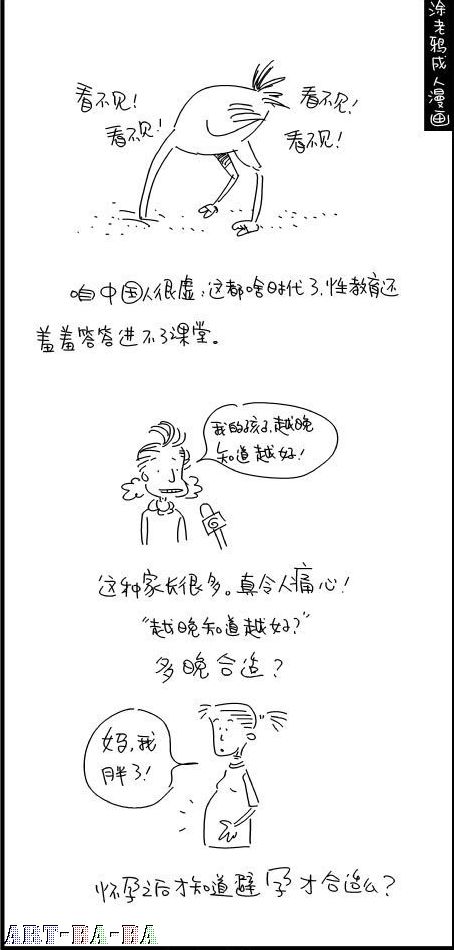 涂老鸦成人漫画
看不见!
看不见!
看不见!
看不见!
咱中国人很虚,这都啥时代了,性教育还
羞羞答答进不了课堂。
我的孩子,越晚
知道越好!
这种家长很多。真令人痛心!
“越晚知道越好?”
多晚合适?
妈,我
胖了!
怀孕之后才知道避孕才合适么?
ART-BA-BA